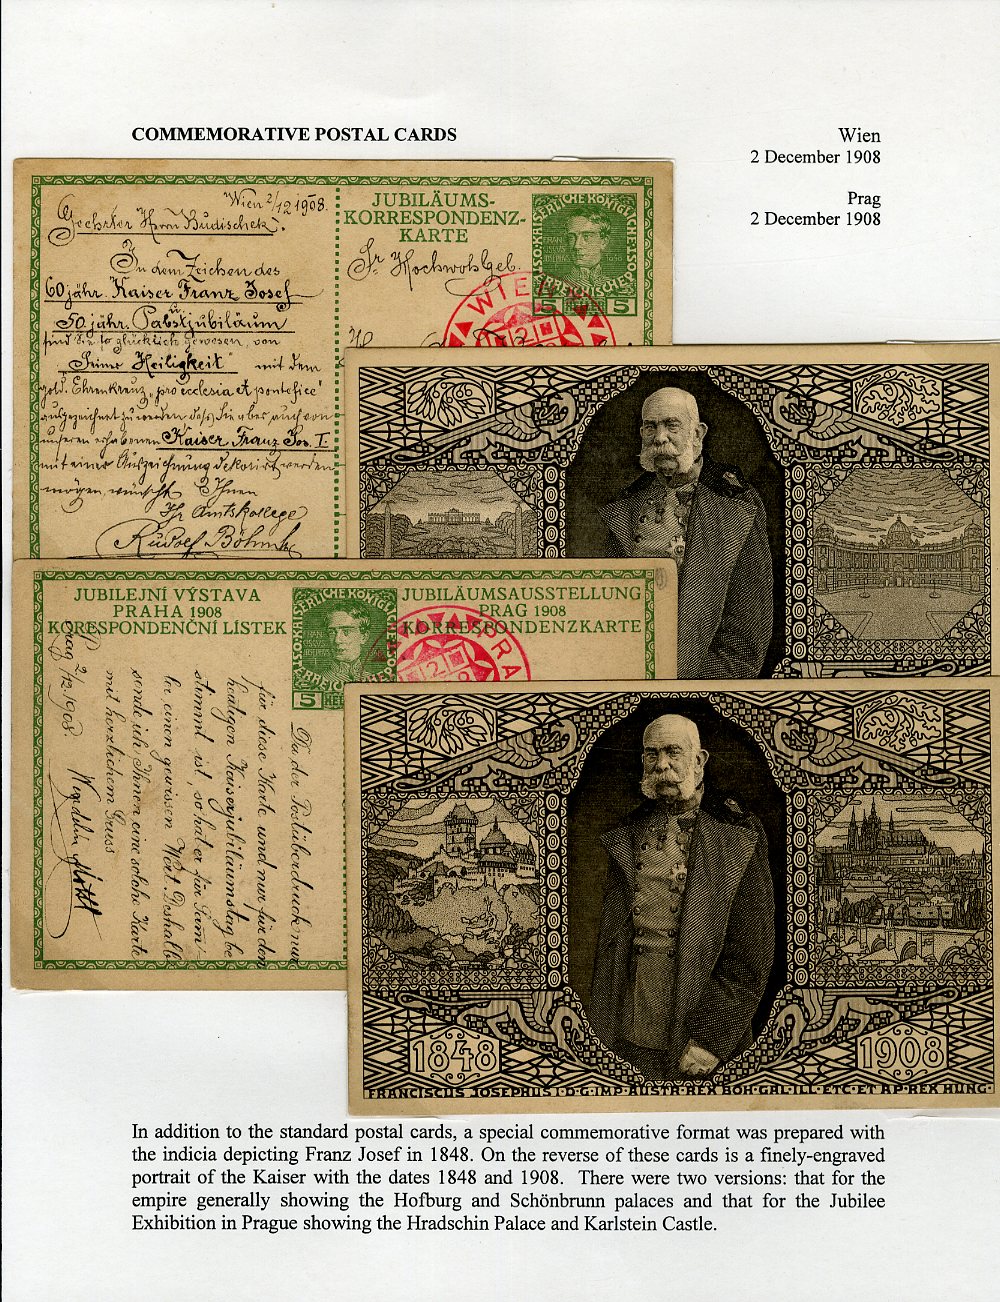 COMMEMORATIVE POSTAL CARDS
Wien
2 December 1908
Prag
2 December 1908
Wien 2/12 1908.
Geehrter Herr Budischek!
In dem Zeichen des
60 jähr. Kaiser Franz Josef
u.
50. jähr. Pabstjubiläum
sind Sie so glücklich gewesen, von
"Seine Heiligkeit" mit dem
gold. Ehrenkreuz „pro ecclesia et pontefice"
ausgezeichnet zu werden dass Sie aber auch von
unseren erhabenen Kaiser Franz Jos. I.
mit einer Auszeichnung dekorirt werden
mögen, wünscht Ihnen
Ihr Amtskollege
Rudolf Böhm
JUBILÄUMS-
KORRESPONDENZ-
KARTE
Sr. Hochwohlgeb.
KAISERLICHE KÖNIGLICHE
5 5
WIEN
JUBILEJNÍ VÝSTAVA
PRAHA 1908
KORESPONDENČNÍ LÍSTEK
JUBILÄUMSAUSSTELLUNG
PRAG 1908
KORRESPONDENZKARTE
KAISERLICHE KÖNIGL
5
PRA
Prag 2/12. 1908
Da der Postüberdruck nur
für diese Karte und nur für den
heutigen Kaiserjubiläumstag be
stimmt ist, so hat er für Sam-
ler einen gewissen Wert. Deshalb
sende ich Ihnen eine solche Karte
mit herzlichem Gruss
1848
1908
FRANCISCUS JOSEPHUS I·D·G·IMP·AUSTR·REX BOH·GAL·ILL·ETC·ET AP·REX HUNG·
In addition to the standard postal cards, a special commemorative format was prepared with
the indicia depicting Franz Josef in 1848. On the reverse of these cards is a finely-engraved
portrait of the Kaiser with the dates 1848 and 1908. There were two versions: that for the
empire generally showing the Hofburg and Schönbrunn palaces and that for the Jubilee
Exhibition in Prague showing the Hradschin Palace and Karlstein Castle.